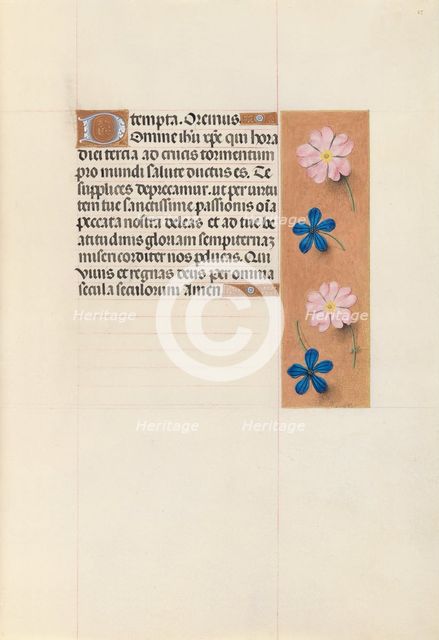 tempta. Oremus.
Domine ihu xpe qui hora
diei tercia ad crucis tormentum
pro mundi salute ductus es. Te
supplices deprecamur. ut per virtu
tem tue sanctissime passionis oĩa
peccata nostra deleas et ad tue be
atitudinis gloriam sempiternaz
misericorditer nos pducas. Qui
vivis et regnas deus per omnia
secula seculorum Amen
Heritage
Heritage
Heritage
Heritage
Heritage
Heritage